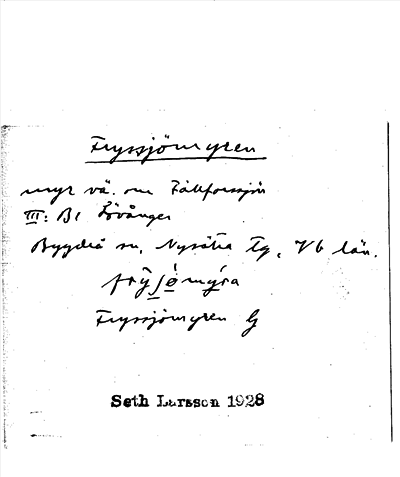 Frysjömyren
myr vä. om Tällforssjön
III: B1 Lövånger
Bygdeå sn, Nysätra tg, Vb län.
Frysjömyren G
Seth Larsson 1928